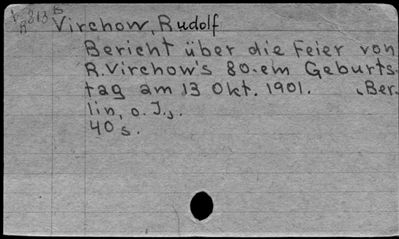 V 813 B
R
Virchow, Rudolf
Bericht über die Feier von
R. Virchow's 80.em Geburts-
tag am 13 Okt. 1901. Ber-
lin, o. J.,.
40 s.